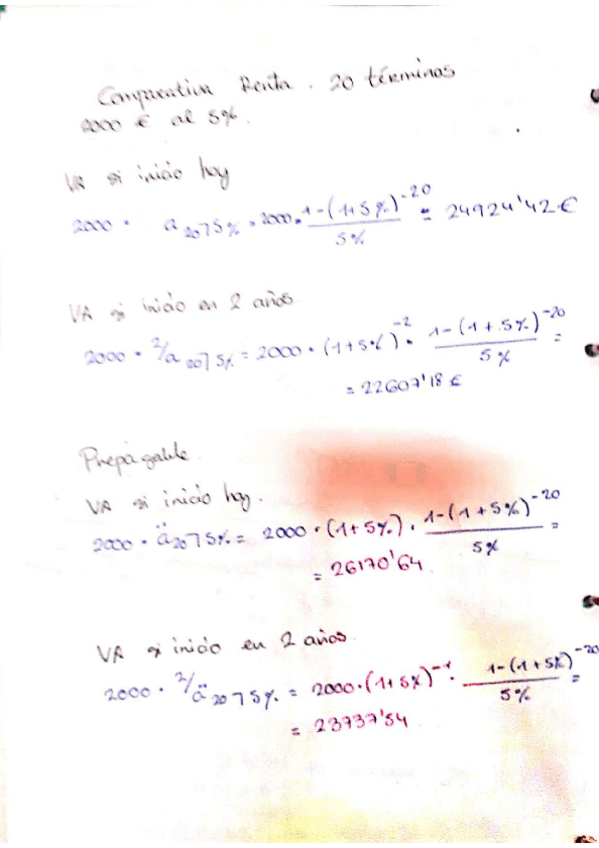 Comparativa Renta. 20 términos
2000 € al 5%.
VA si inicio hoy
2000 · a 20⌉5% = 2000 · 1-(1+5%)^-20 / 5% = 24924'42 €
VA si inicio en 2 años
2000 · 2/a 20⌉5% = 2000 · (1+5%)^-2 · 1-(1+5%)^-20 / 5% =
= 22607'18 €
Prepagable.
VA si inicio hoy.
2000 · ä 20⌉5% = 2000 · (1+5%) · 1-(1+5%)^-20 / 5% =
= 26170'64
VA si inicio en 2 años.
2000 · 2/ä 20⌉5% = 2000·(1+5%)^-1 · 1-(1+5%)^-20 / 5% =
= 23737'54